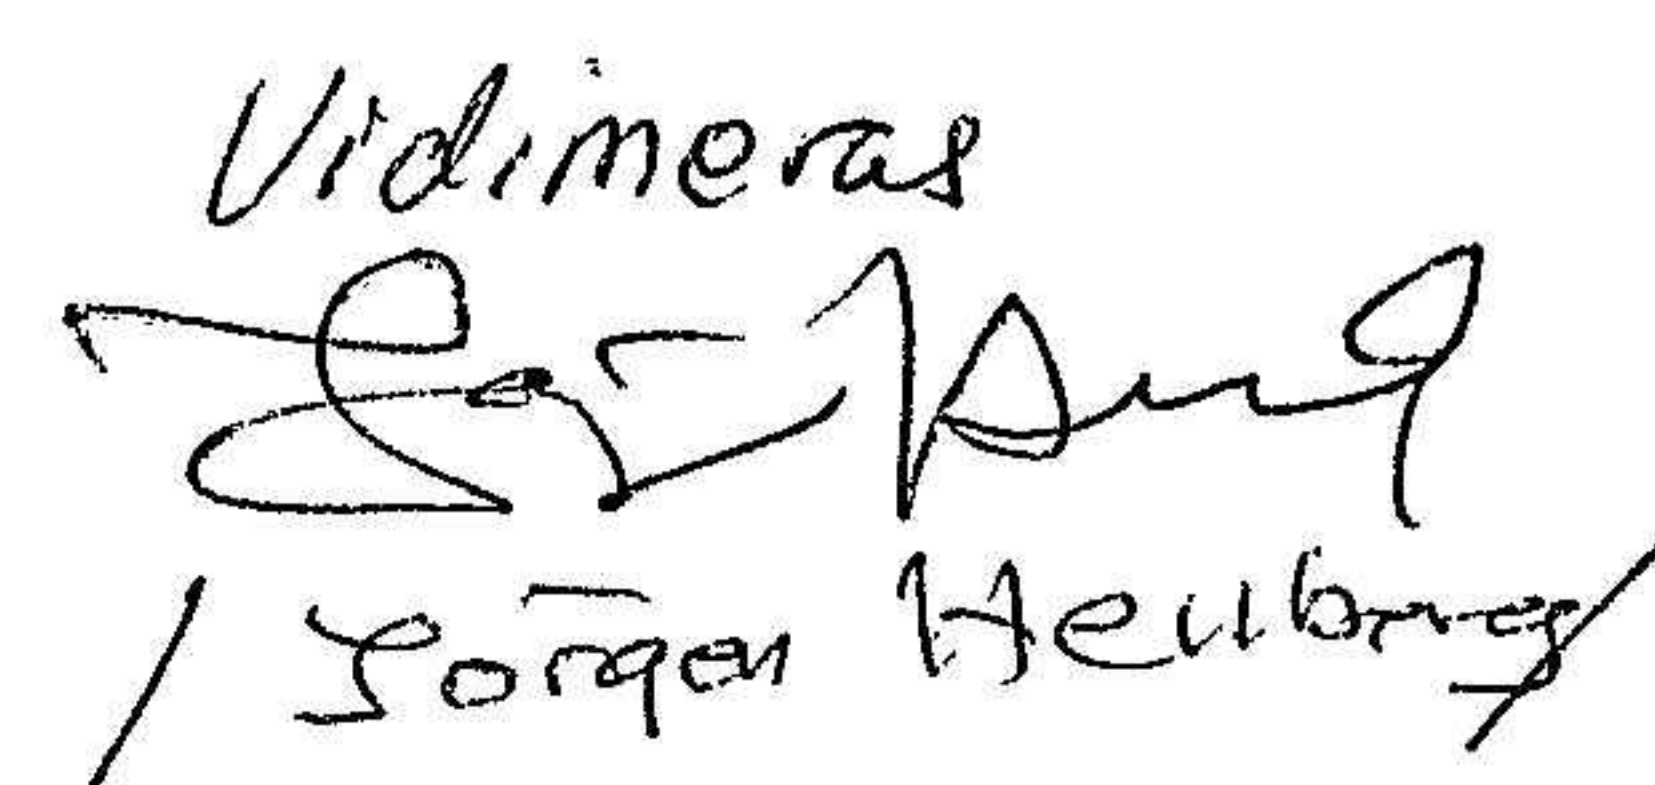 Vidimeras
/ Jörgen Hellberg /